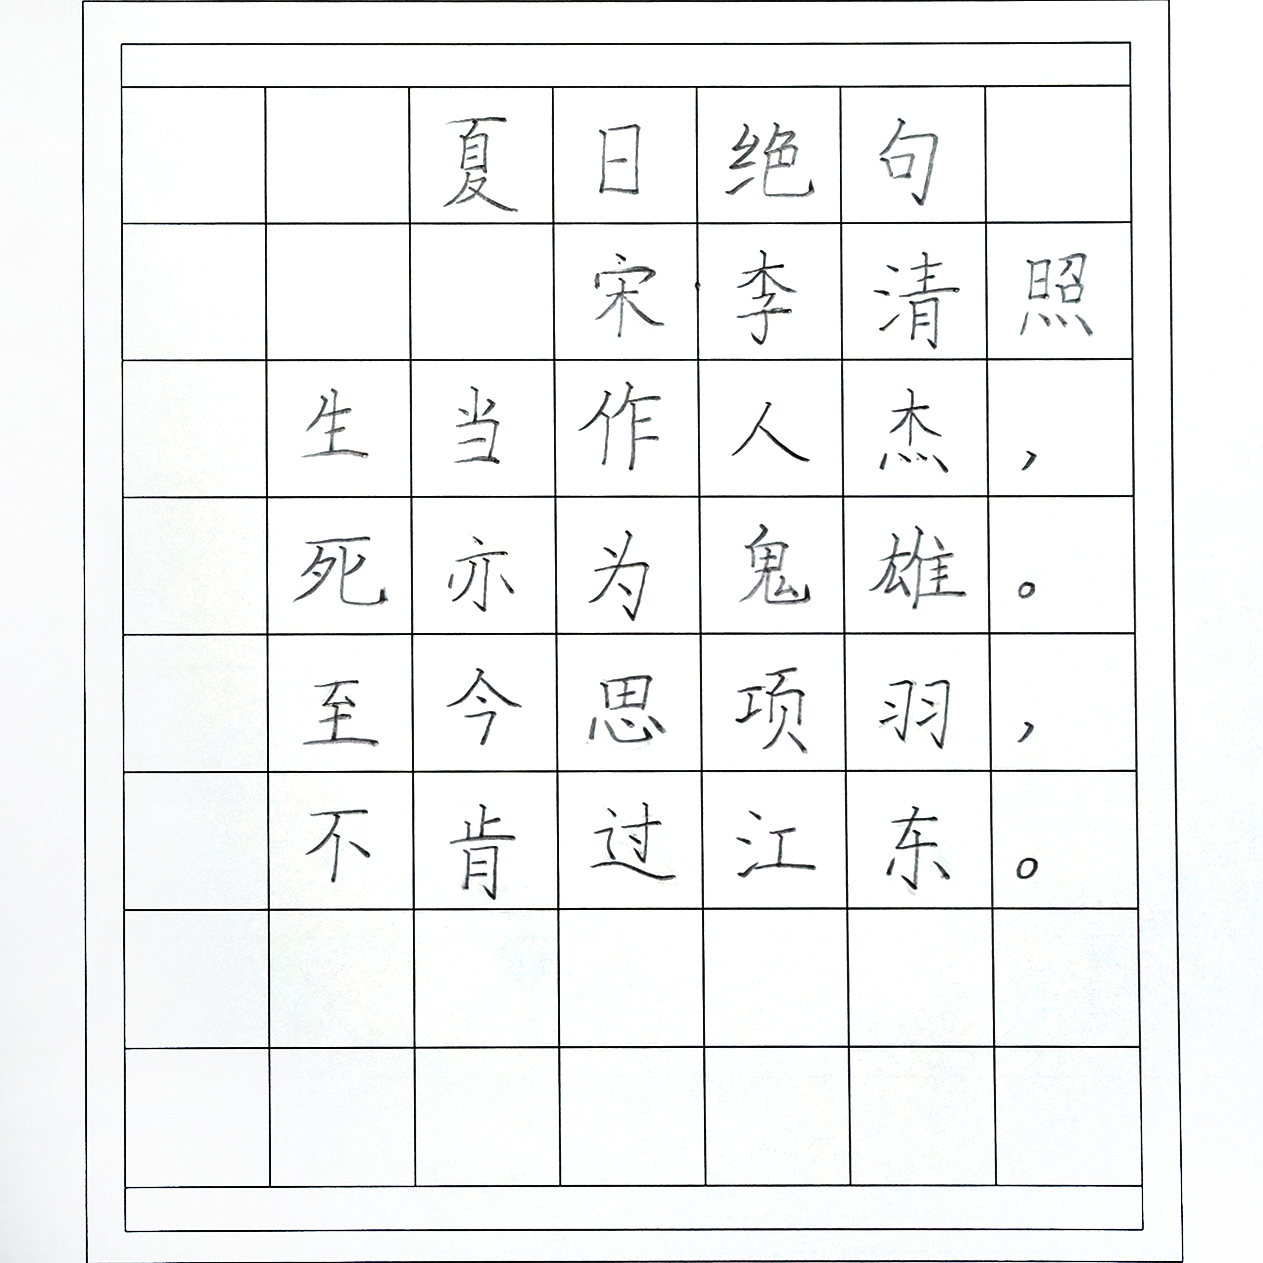 夏日绝句
宋李清照
生当作人杰，
死亦为鬼雄。
至今思项羽，
不肯过江东。